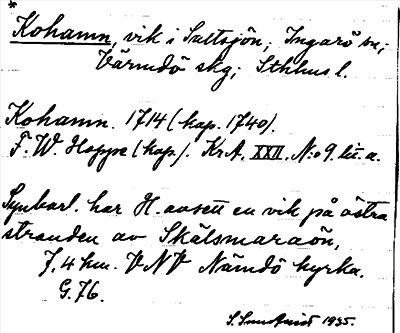 * Kohamn, vik i Saltsjön; Ingarö sn;
Värmdö skg; Sthlms l.
Kohamn. 1714 (kop. 1740).
F. W. Hoppe (kop.). KrA. XXII. N:o 9. lit. a.
Synbarl. har H. avsett en vik på östra
stranden av Skälsmaraön,
7,4 km. VNV Nämdö kyrka.
G. 76.
S. Sundquist 1935.